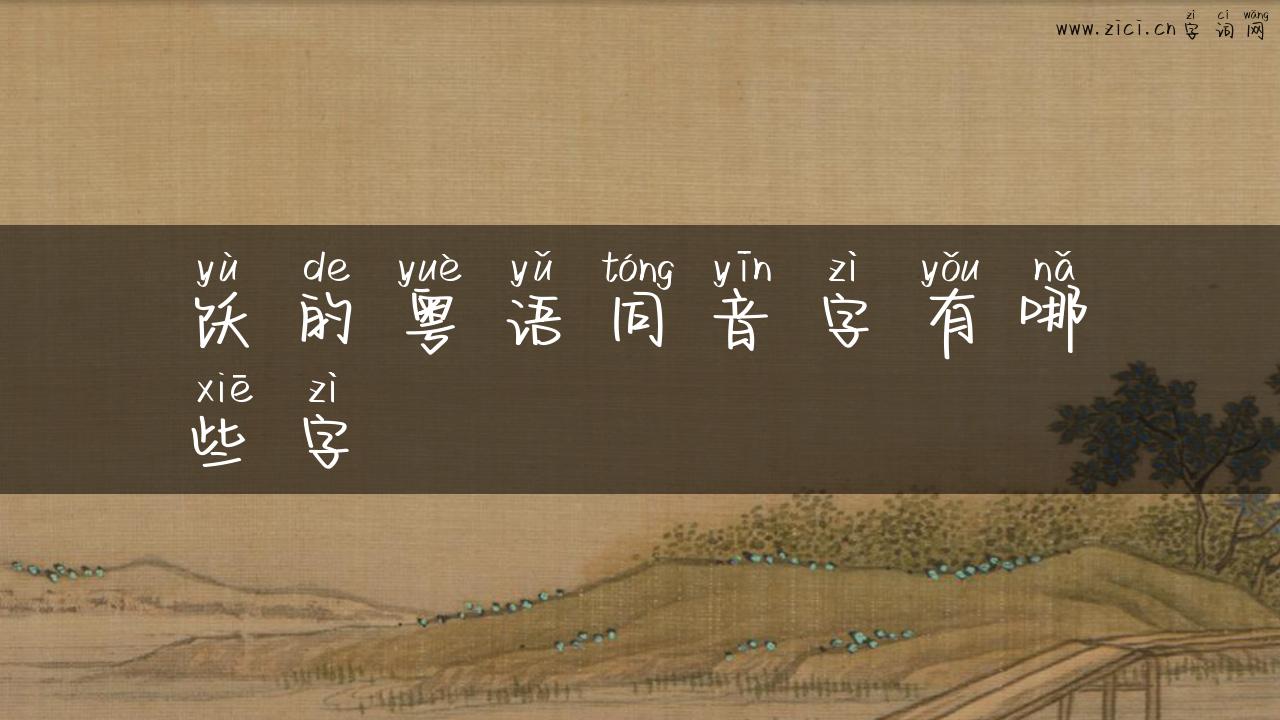 zì cí wǎng
www.zici.cn字词网
yù de yuè yǔ tóng yīn zì yǒu nǎ
饫的粤语同音字有哪
xiē zì
些字